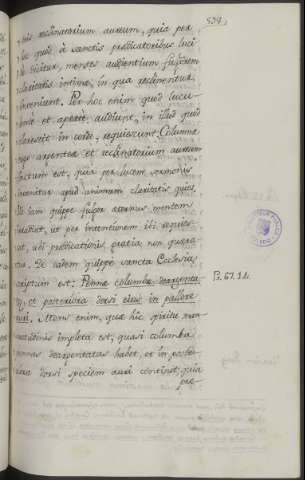 539.
reclinatorium aureum, quia per
hoc quod à sanctis prædicatoribus luci
dè dicitur, mentes audientium fulgorem
claritatis intimæ, in qua reclinentur,
inveniunt. Per hoc enim quod lucu-
lenter et apertè audiunt, in illud quod
clarescit in corde, requiescunt. Columnæ
ergo argenteæ et reclinatorium aureum
factum est, quia per lucem sermonis
invenitur apud animum claritatis quies.
Ille iam quippe fulgor æternus mentem
irradiat, ut per intentionem ibi requies
cat, ubi prædicationis gratia non quæra
tur. De eadem quippe sancta Ecclesia
scriptum est: Pennæ columbæ deargenta
tæ, et posteriora dorsi eius in pallore
auri. Mens enim, quæ hîc spiritu man
suetudinis impleta est, quasi columba
pennas deargentatas habet, et in poste-
riora dorsi speciem auri continet, quia
Ps. 67. 14.